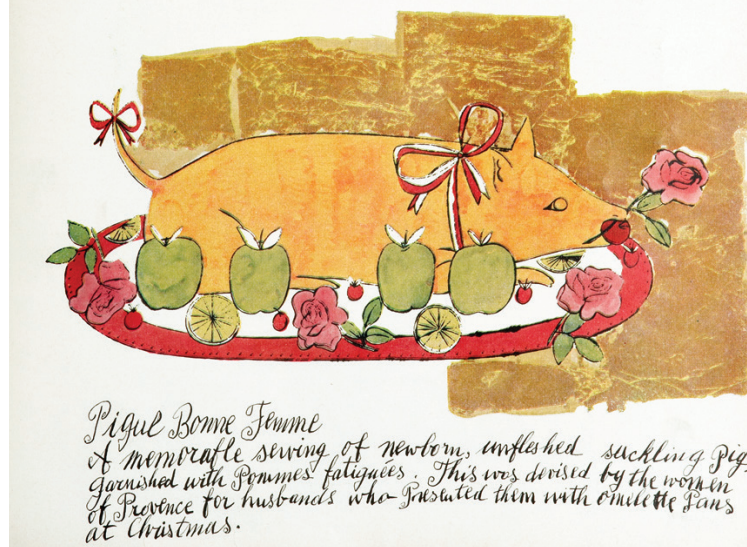 Pigue Bonne Femme
A memorafle serving of newborn, unfleshed suckling Pig
garnished with Pommes fatiguées. This was devised by the women
of Provence for husbands who Presented them with omelette Pans
at Christmas.